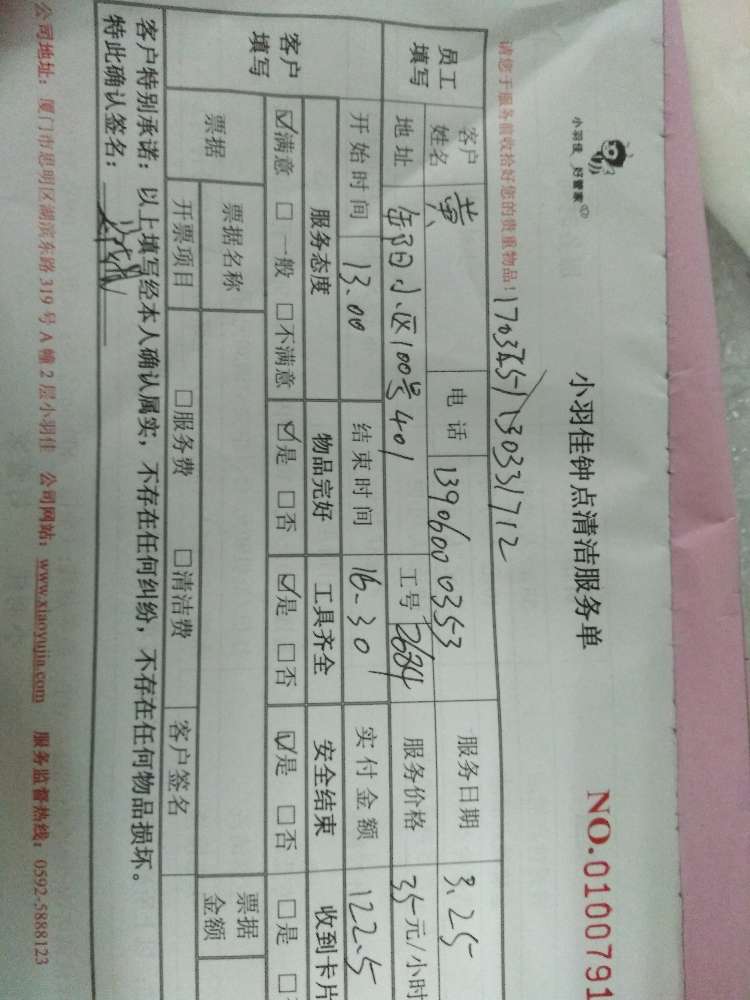 小羽佳 好管家
小羽佳钟点清洁服务单
NO.0100791
请您于服务前收拾好您的贵重物品！
员工填写 客户姓名 黄 电话 13906000353 服务日期 3.25
地址 小区100号401 工号 2684 服务价格 35元/小时
开始时间 13.00 结束时间 16-30 实付金额 122.5
客户填写 服务态度 物品完好 工具齐全 安全结束 收到卡片
☑满意 □一般 □不满意 ☑是 □否 ☑是 □否 ☑是 □否 □是 □
票据 票据名称 票据金额
开票项目 □服务费 □清洁费 客户签名
客户特别承诺：以上填写经本人确认属实，不存在任何纠纷，不存在任何物品损坏。
特此确认签名：
公司地址：厦门市思明区湖滨东路319号A幢2层小羽佳 公司网站：www.xiaoyujia.com 服务监督热线：0592-5888123